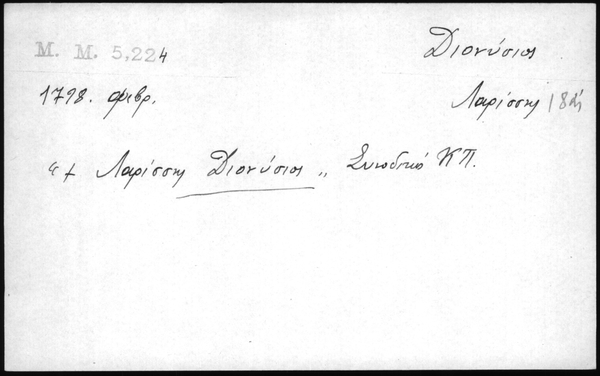 M. M. 5,224
Διονύσιος
1798. φεβρ.
Λαρίσσης
† Λαρίσσης Διονύσιος „ Συνοδικό ΚΠ.